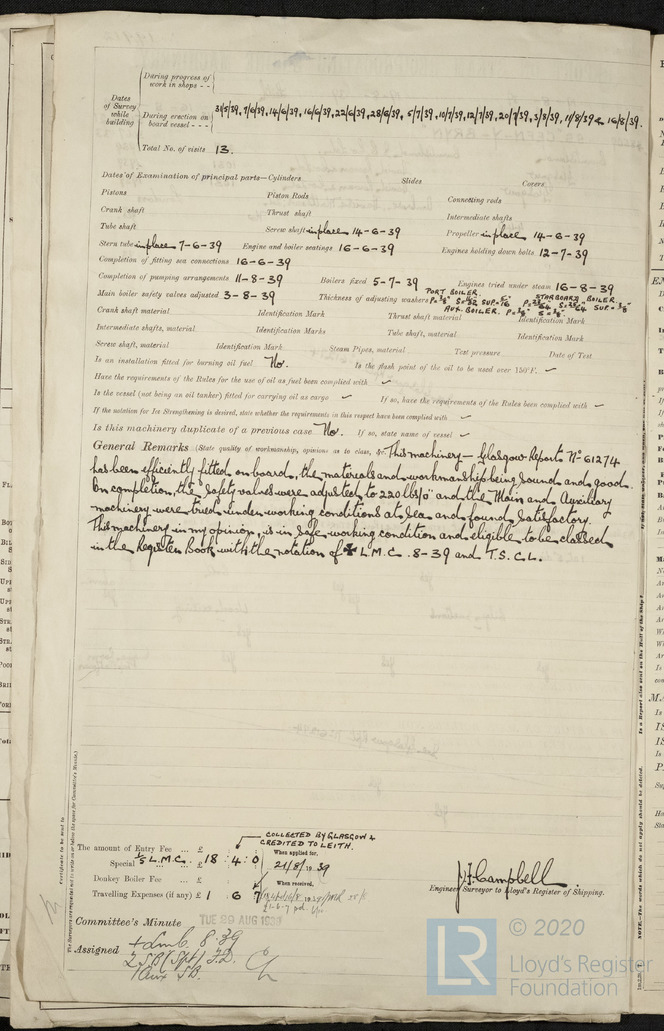 During progress of work in shops - -
Dates of Survey while building
During erection on board vessel - - - 31/5/39, 7/6/39, 14/6/39, 16/6/39, 22/6/39, 28/6/39, 5/7/39, 10/7/39, 12/7/39, 20/7/39, 3/8/39, 11/8/39 & 16/8/39.
Total No. of visits 13.
Dates of Examination of principal parts—Cylinders Slides Covers
Pistons Piston Rods Connecting rods
Crank shaft Thrust shaft Intermediate shafts
Tube shaft Screw shaft in place 14-6-39 Propeller in place 14-6-39
Stern tube in place 7-6-39 Engine and boiler seatings 16-6-39 Engines holding down bolts 12-7-39
Completion of fitting sea connections 16-6-39
Completion of pumping arrangements 11-8-39 Boilers fixed 5-7-39 Engines tried under steam 16-8-39
Main boiler safety valves adjusted 3-8-39 Thickness of adjusting washers PORT BOILER STARBOARD BOILER
AUX. BOILER.
Crank shaft material Identification Mark Thrust shaft material Identification Mark
Intermediate shafts, material Identification Marks Tube shaft, material Identification Mark
Screw shaft, material Identification Mark Steam Pipes, material Test pressure Date of Test
Is an installation fitted for burning oil fuel No. Is the flash point of the oil to be used over 150°F. ✓
Have the requirements of the Rules for the use of oil as fuel been complied with ✓
Is the vessel (not being an oil tanker) fitted for carrying oil as cargo ✓ If so, have the requirements of the Rules been complied with ✓
If the notation for Ice Strengthening is desired, state whether the requirements in this respect have been complied with ✓
Is this machinery duplicate of a previous case No. If so, state name of vessel ✓
General Remarks (State quality of workmanship, opinions as to class, &c. This machinery — Glasgow Report No 61274
has been efficiently fitted on board, the materials and workmanship being sound and good.
On completion, the Safety valves were adjusted to 220 lbs/□" and the Main and Auxiliary
machinery were tried under working conditions at Sea and found Satisfactory.
This machinery in my opinion, is in safe working condition and eligible to be classed
in the Register Book with the notation of ✠ L.M.C. 8-39 and T.S. C.L.
COLLECTED BY GLASGOW &
CREDITED TO LEITH.
The amount of Entry Fee ... £
When applied for,
Special 1/5 L.M.C. £ 18 : 4 : 0 21/8/1939
Donkey Boiler Fee ... £
When received,
Travelling Expenses (if any) £ 1 : 6 : 7
J. F. Campbell
Engineer Surveyor to Lloyd's Register of Shipping.
Committee's Minute TUE 29 AUG 1939
Assigned + Lmc 8.39
2 S.B (Spt) F.D.
1 Aux S.B.
© 2020
LR Lloyd's Register
Foundation